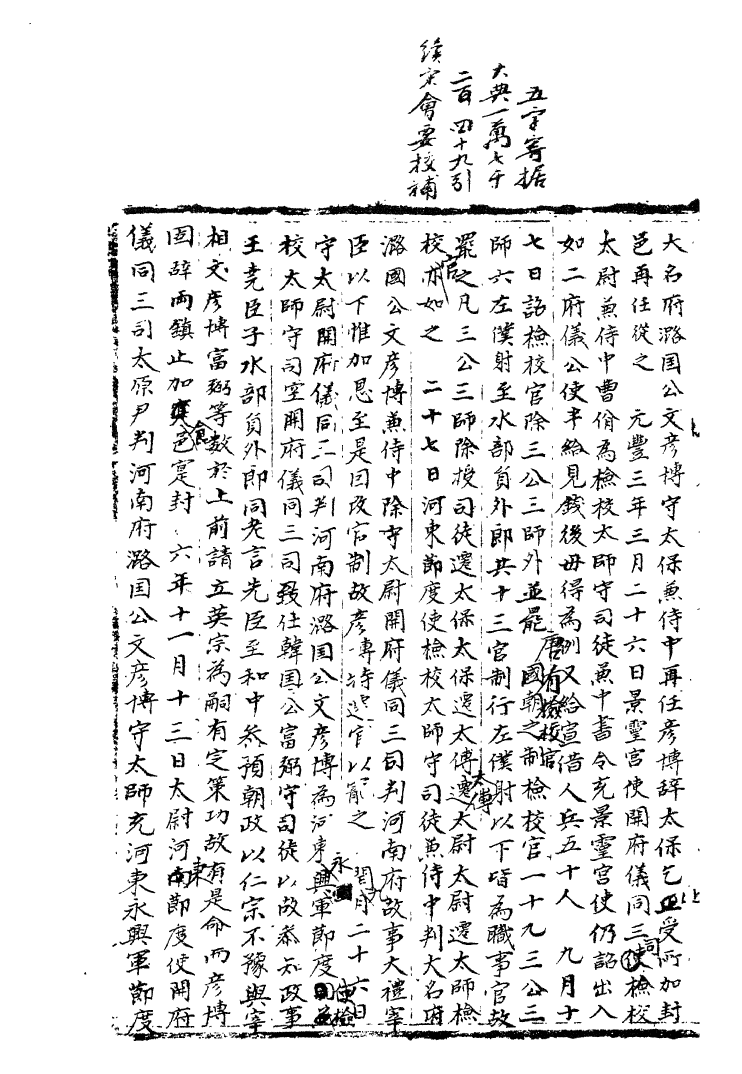 五字寄据
大典一萬七千
二百四十九引
續宋會要校補
大名府潞国公文彦博守太保兼侍中再任彦博辞太保乞止受所加封
邑再任從之 元豐三年三月二十六日景靈宮使開府儀同三司檢校
太尉兼侍中曹佾為檢校太師守司徒兼中書令充景靈宮使仍詔出入
如二府儀公使半給見錢後毋得為例又給宣借人兵五十人 九月十
七日詔檢校官除三公三師外並罷唐有檢校官國朝之制檢校官一十九三公三
師六左僕射至水部員外郎共十三官制行左僕射以下皆為職事官故
罷之凡三公三師除授司徒遷太保太保遷太傅太傅遷太尉太尉遷太師檢
校官亦如之 二十七日河東節度使檢校太師守司徒兼侍中判大名府
潞國公文彦博兼侍中除守太尉開府儀同三司判河南府故事大禮宰
臣以下惟加恩至是因改官制故彦博特遷官以寵之 閏九月二十六日
守太尉開府儀同三司判河南府潞国公文彦博為河東永興軍節度使檢
校太師守司空開府儀同三司致仕韓国公富弼守司徒以故叅知政事
王尭臣子水部員外郎同老言先臣至和中叅預朝政以仁宗不豫與宰
相文彦博富弼等數於上前請立英宗為嗣有定策功故有是命而彦博
固辞両鎮止加食邑寔封 六年十一月十三日太尉河東節度使開府
儀同三司太原尹判河南府潞国公文彦博守太師充河東永興軍節度